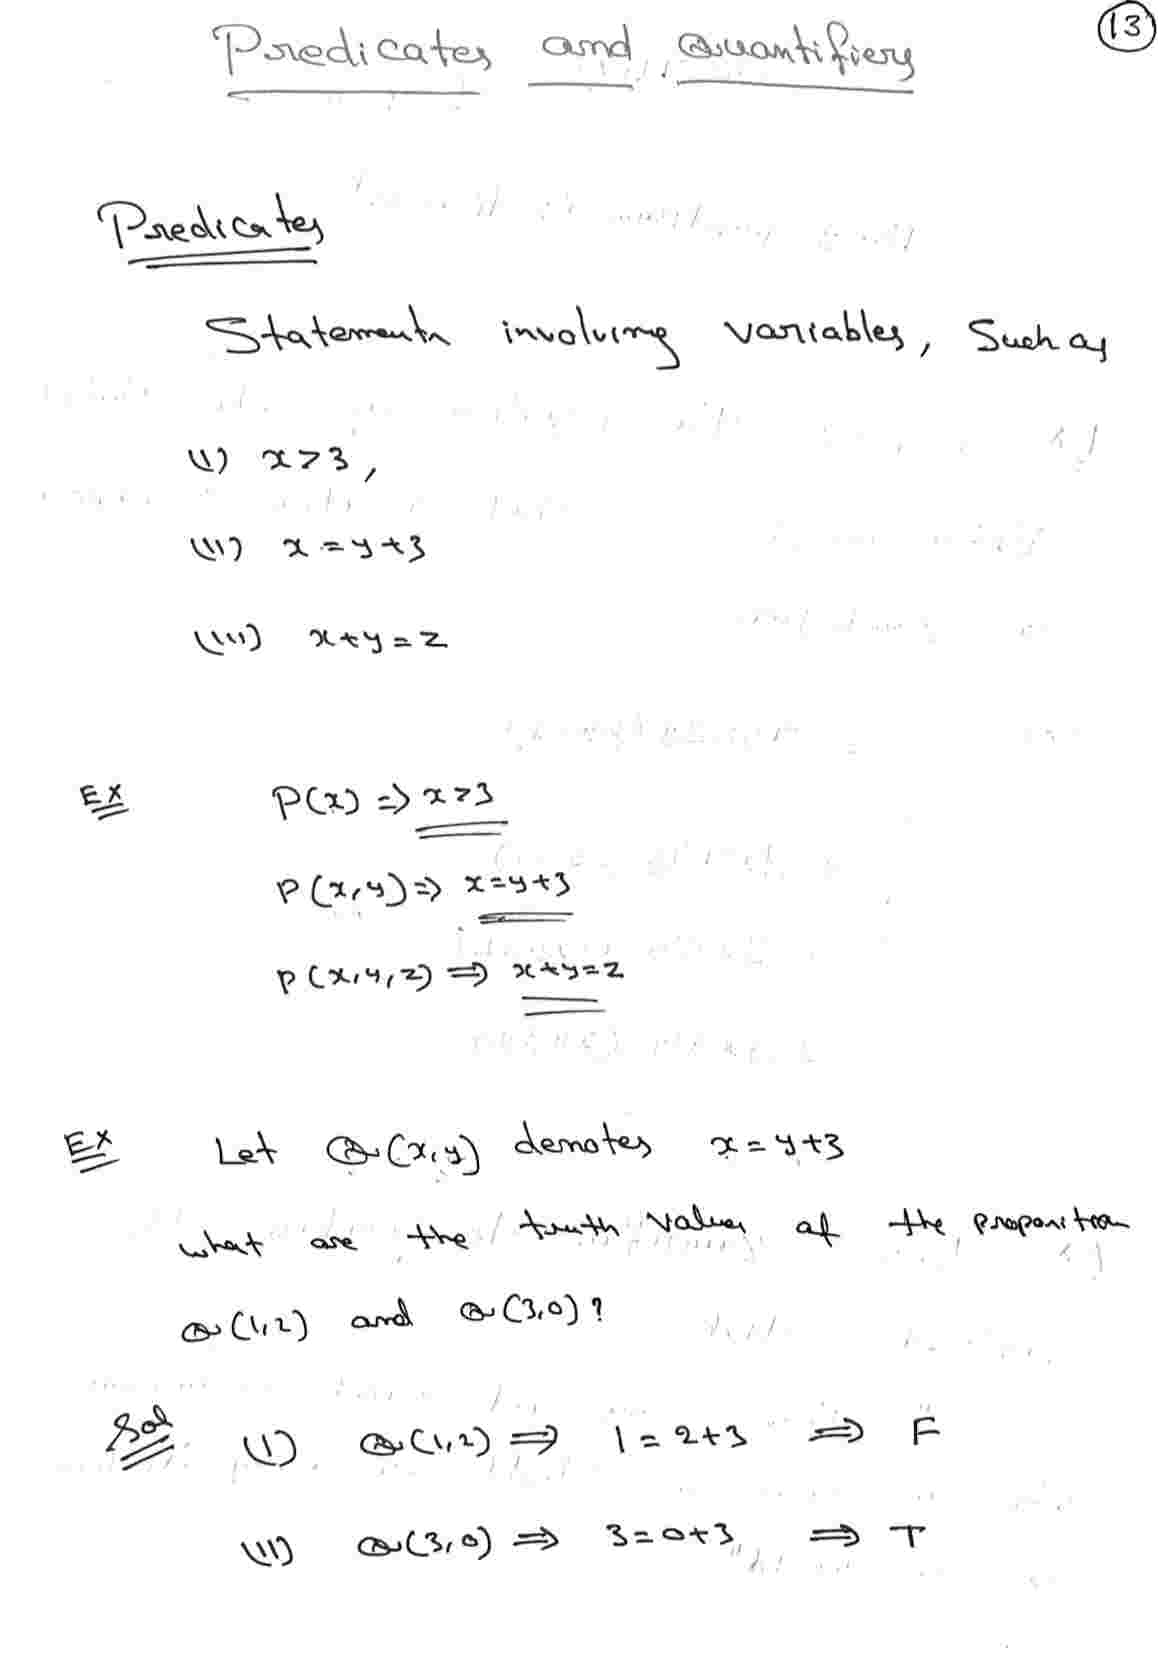 13
Predicates and Quantifiers
Predicates
Statements involving variables, Such as
(i) x>3,
(ii) x=y+3
(iii) x+y=z
Ex P(x) => x>3
P(x,y) => x=y+3
P(x,y,z) => x+y=z
Ex Let Q(x,y) denotes x=y+3
what are the truth values of the proposition
Q(1,2) and Q(3,0)?
Sol (i) Q(1,2) => 1=2+3 => F
(ii) Q(3,0) => 3=0+3 => T